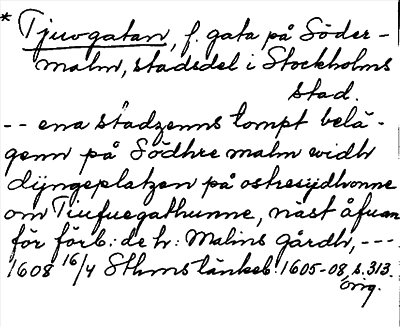 * Tjuvgatan, f. gata på Söder-
malm, stadsdel i Stockholms
stad.
-- ena stadzenns tompt belä-
genn på Södhre malm widh
dÿngeplatzen på ostresijdhonne
om Tiufuegathunne, näst åfuan
för förb: de h: Malins gårdh, ---
1608 16/4 Sthms tänkeb. 1605-08, s. 313.
orig.